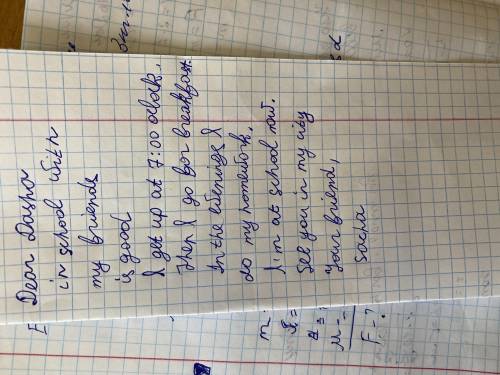 Dear Dasha
in school with
my friends
is good
I get up at 7:00 oclock,
Then I go for breakfast.
In the evenings I
do my homework.
I'm at school now.
See you in my city
Your friend,
Sacha